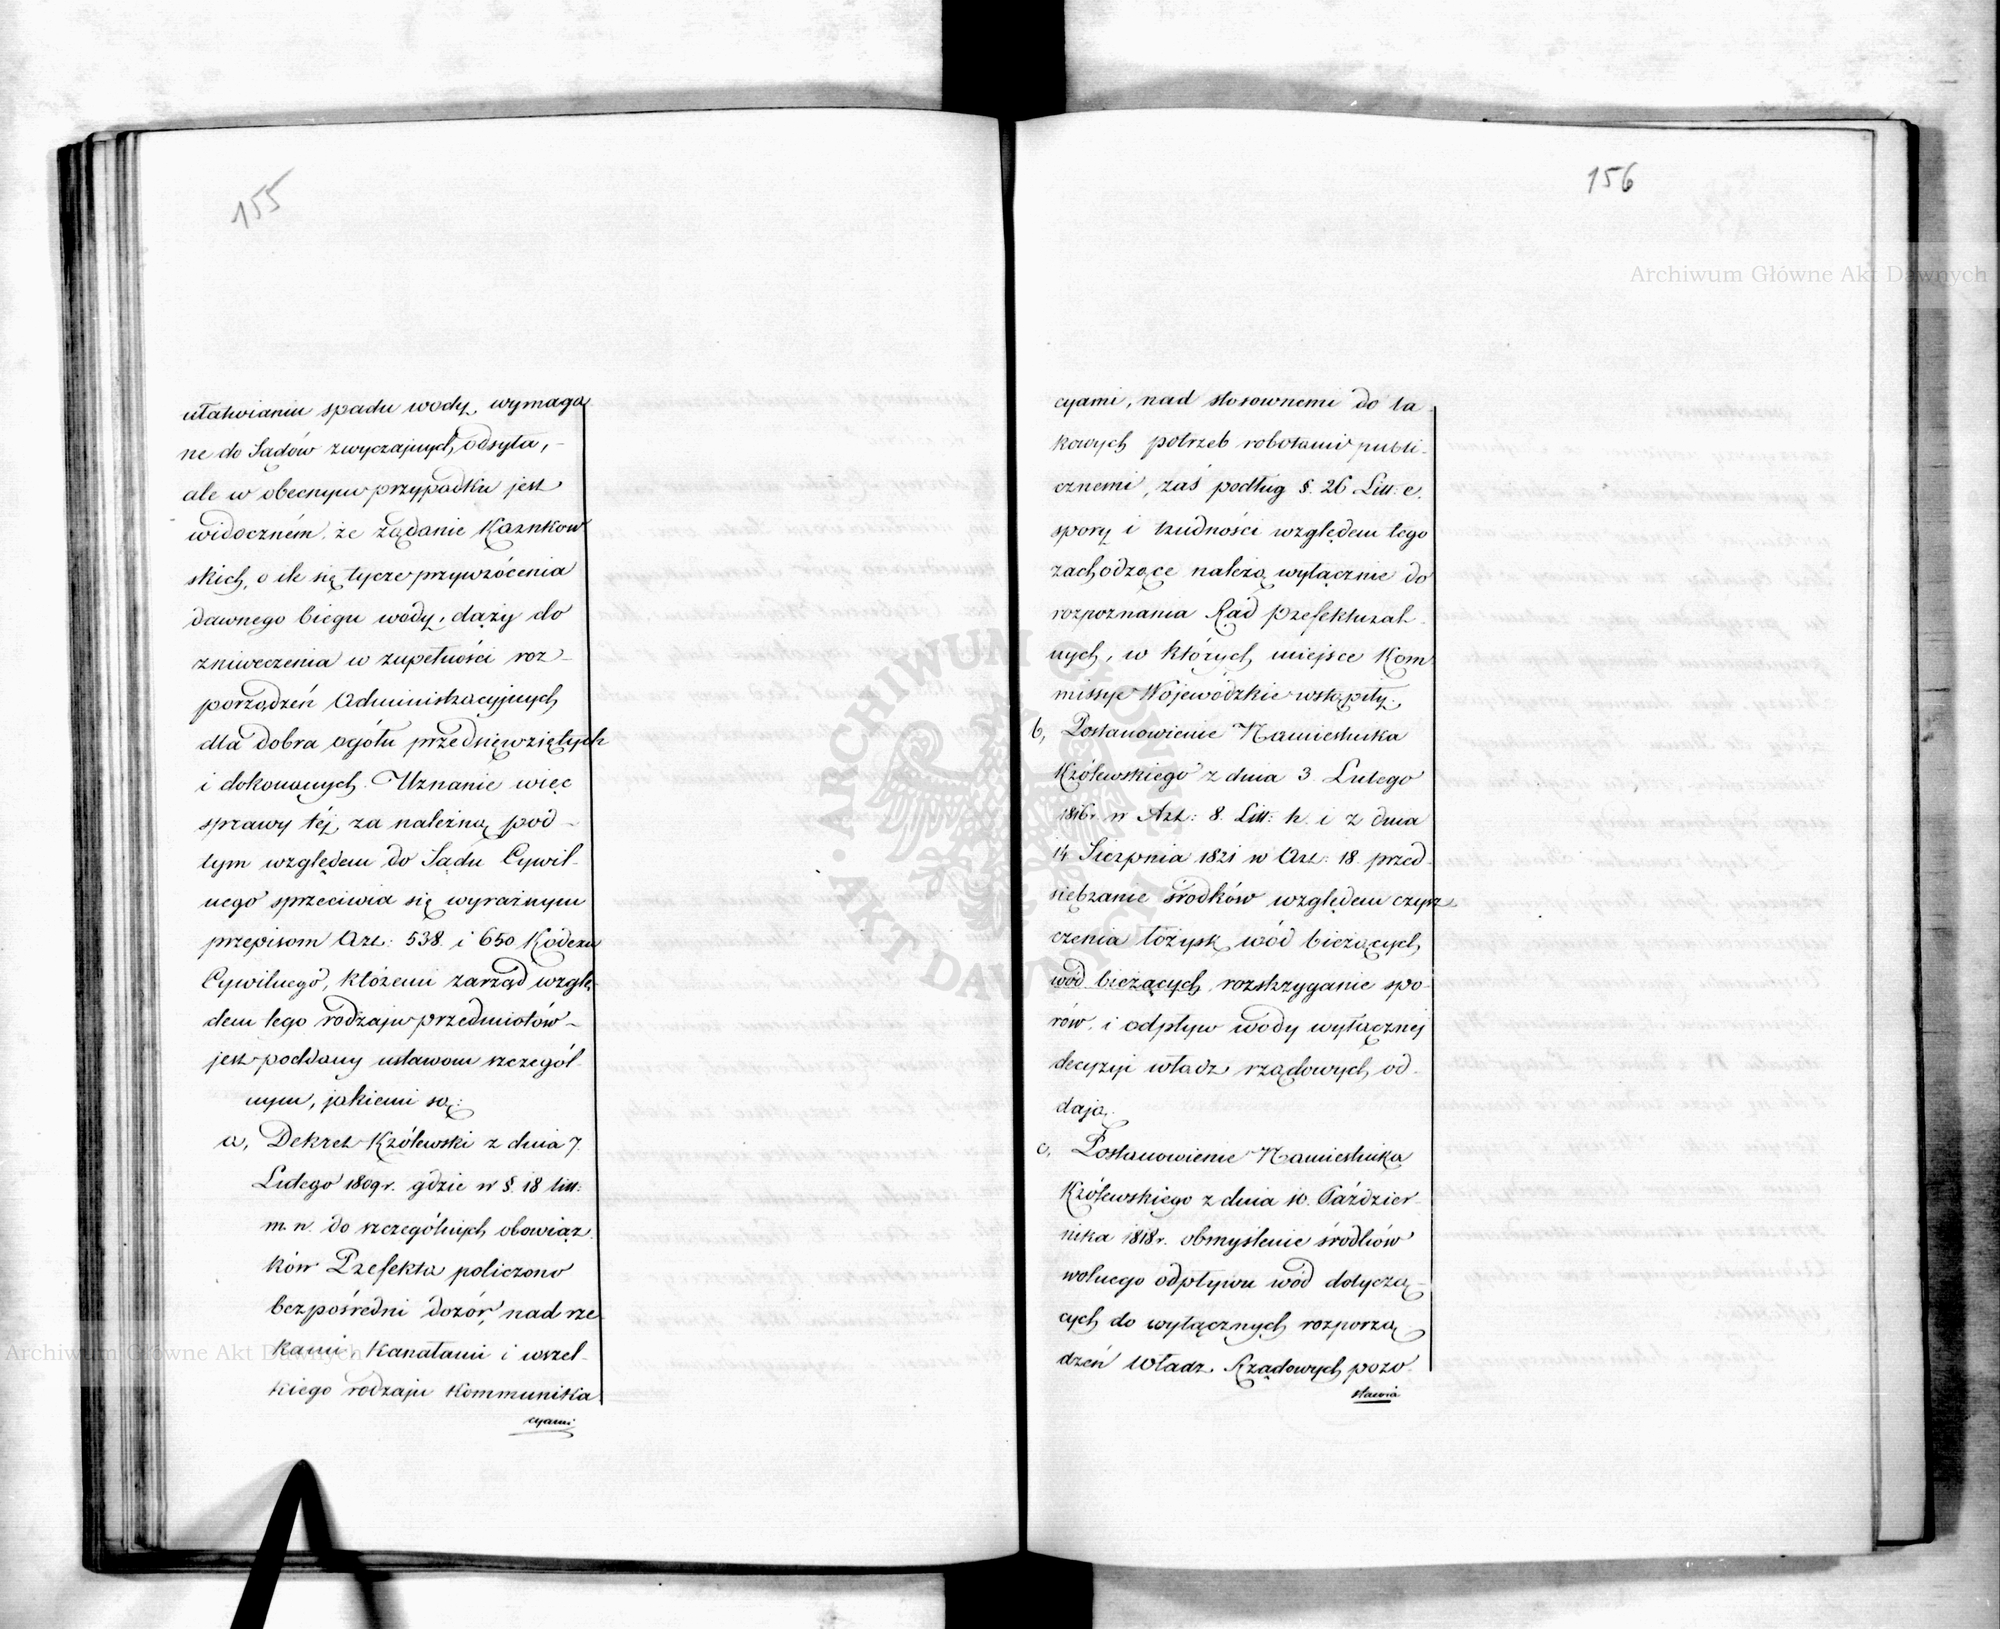 155
ułatwianiu spadu wody, wymaga
ne do Sądów zwyczajnych odsyła, -
ale w obecnym przypadku jest
widoczném, że żądanie Karnkow
skich, o ile się tycze przywrócenia
dawnego biegu wody, dąży do
zniweczenia w zupełności roz-
porządzeń Administracyjnych
dla dobra ogółu przedsięwziętych
i dokonanych. Uznanie więc
sprawy téj, za należną pod-
tym względem do Sądu Cywil-
nego sprzeciwia się wyraźnym
przepisom Art: 538. i 650 Kodexu
Cywilnego, któremi zarząd wzglę-
dem tego rodzaju przedmiotów-
jest poddany ustawom szczegól-
nym, jakiemi są:
a, Dekret Królewski z dnia 7.
Lutego 1809 r. gdzie w §. 18 litt:
m. n. do szczególnych obowiąz
ków Prefekta policzono
bezpośredni dozór, nad rze
kami, kanałami i wszel-
kiego rodzaju kommunika
cyami
156
cyami, nad stosownemi do ta-
kowych potrzeb robotami publi-
cznemi, zaś podług §. 26 Litt: e.
spory i trudności względem tego
zachodzące należą wyłącznie do
rozpoznania Rad Prefektural-
nych, w których miejsce Kom
missye Wojewódzkie wstąpiły.
b, Postanowienie Namiestnika
Królewskiego z dnia 3 Lutego
1816 r. w Art: 8. Litt: h. i z dnia
14 Sierpnia 1821 w Art: 18. przed-
siębranie środków względem czysz
czenia łożysk wód bieżących,
wód bieżących, rozstrzyganie spo-
rów, i odpływ wody wyłącznej
decyzyi władz rządowych od-
dają.
c, Postanowienie Namiestnika
Królewskiego z dnia 10. Paździer-
nika 1818 r. obmyślenie środków
wolnego odpływu wód dotyczą-
cych do wyłącznych rozporzą-
dzeń Władz Rządowych pozo-
stawia
Archiwum Główne Akt Dawnych
Archiwum Główne Akt Dawnych
ARCHIWUM GŁÓWNE AKT DAWNYCH